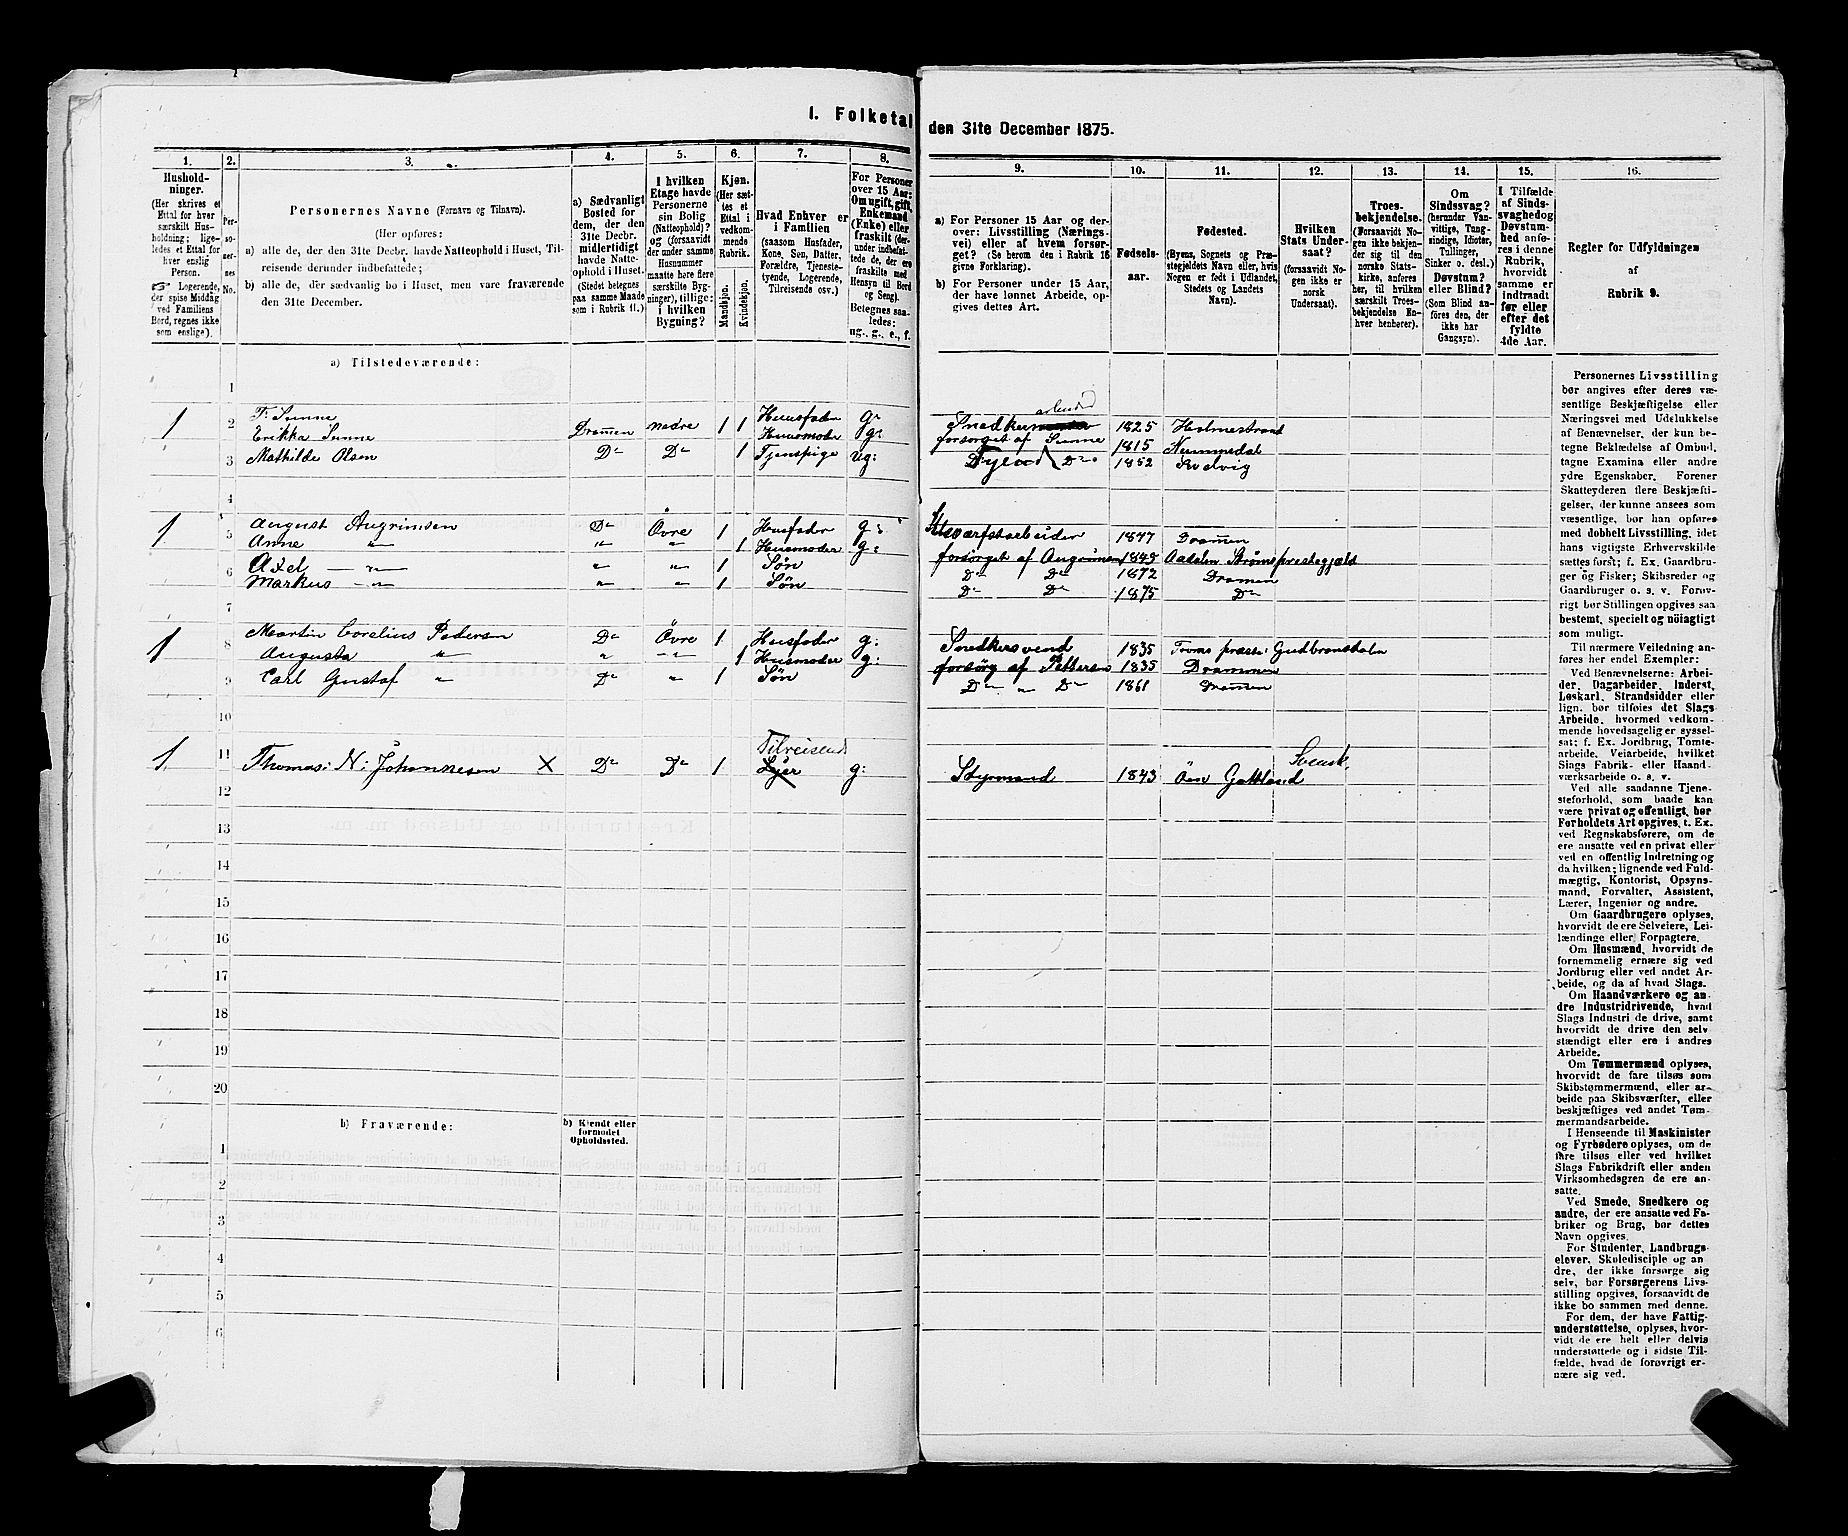 I. Folketal den 31te December 1875.
1. 2. 3. 4. 5. 6. 7. 8. 9. 10. 11. 12. 13. 14. 15. 16.
Hushold-
ninger.
(Her skrives et
Ettal for hver
særskilt Hus-
holdning; lige-
ledes et Ettal for
hver enslig
Person.
Logerende,
der spise Middag
ved Familiens
Bord, regnes ikke
som enslige).
Per-
so-
ner-
nes
No.
Personernes Navne (Fornavn og Tilnavn).
(Her opføres:
a) alle de, der den 31te Decbr. havde Natteophold i Huset, Til-
reisende derunder indbefattede;
b) alle de, der sædvanlig bo i Huset, men vare fraværende
den 31te December.
a) Sædvanligt
Bosted for
dem, der den
31te Decbr.
midlertidigt
havde Natte-
ophold i Huset.
(Stedet betegnes
paa samme Maade
som i Rubrik 11.)
I hvilken
Etage havde
Personerne
sin Bolig
(Natteophold)?
og (forsaavidt
der under samme
Husnummer
maatte høre flere
særskilte Byg-
ninger), tillige:
i hvilken
Bygning?
Kjøn.
(Her sæt-
tes et
Ettal i
vedkom-
mende
Rubrik.
Mandkjøn.
Kvindekjøn.
Hvad Enhver er
i Familien
(saasom Husfader,
Kone, Søn, Datter,
Forældre, Tjeneste-
tyende, Logerende,
Tilreisende osv.)
For Personer
over 15 Aar:
Om ugift, gift,
Enkemand
(Enke) eller
fraskilt (der-
under indbefat-
tede de, der ere
fraskilte med
Hensyn til Bord
og Seng).
Betegnes saa-
ledes:
ug., g., e., f.
a) For Personer 15 Aar og der-
over: Livsstilling (Nærings-
vei) eller af hvem forsør-
get? (Se herom den i Rubrik 16
givne Forklaring).
b) For Personer under 15 Aar,
der have lønnet Arbeide, op-
gives dettes Art.
Fødsels-
aar.
Fødested.
(Byens, Sognets og Præ-
stegjeldets Navn eller, hvis
Nogen er født i Udlandet,
Stedets og Landets
Navn).
Hvilken
Stats Under-
saat?
(forsaavidt No-
gen ikke er
norsk
Undersaat).
Troes-
bekjendelse.
(Forsaavidt No-
gen ikke bekjen-
der sig til den
norske Stats-
kirke, anføres
her, til hvilken
særskilt Troes-
bekjendelse En-
hver henhører).
Om
Sindssvag?
(herunder Van-
vittige, Tung-
sindige, Idioter,
Tullinger,
Sinker o. desl.)
Døvstum?
eller Blind?
(Som Blind an-
føres den, der
ikke har
Gangsyn).
I Tilfælde
af Sinds-
svaghed og
Døvstum-
hed anfø-
res i denne
Rubrik,
hvorvidt
samme er
indtraadt
før eller
efter det
fyldte
4de Aar.
Regler for Udfyldningen
af
Rubrik 9.
a) Tilstedeværende:
1
1 2 F: Sunne 1 Huusfader g: Snedker arbeid 1825 Holmestrand
Erikka Sunne Dramen nedre 1 Huusmoder g: forsørget af Sunne 1815 Nummedal
3 Mathilde Olsen Do Do 1 Tjenspige ug: Do 1852 Rødvig
4
1 5 August Angrimsen Do Øvre 1 Husfader g: arbeider 1847 Dramen
Anne " " " 1 Husmoder g: forsørget af Angrimsen 1845 Aadalen Strømsprestegjeld
6 Axel — " — " " 1 Søn Do Do 1872 Dramen
Markus — " — " " 1 Søn Do Do 1875 Do
7
1 8 Martin Corelius Pedersen Do Øvre 1 Husfader g: Snedkersvend 1835 Gudbransdalen
Augusta " " — " — 1 Husmoder g: forsørg af Pettersen 1835 Drammen
9 Carl Gustaf " Do " 1 Søn Do " Do 1861 Dramen
10
1 11 Thomas: N: Johannesen X Do Do 1 Tilreisende g: Styrmand 1843 Öen Gottland Svensk
12
13
14
15
16
17
18
19
20
b) Fraværende:
b) Kjendt eller
formodet
Opholdssted.
1
2
3
4
5
6
Personernes Livsstilling
bør angives efter deres væ-
sentlige Beskjæftigelse eller
Næringsvei med Udelukkelse
af Benævnelser, der kun be-
tegne Beklædelse af Ombud,
tagne Examina eller andre
ydre Egenskaber. Forener
Skatteyderen flere Beskjæfti-
gelser, der kunne ansees som
væsentlige, bør han opføres
med dobbelt Livsstilling, idet
hans vigtigste Erhvervskilde
sættes først; f. Ex. Gaardbru-
ger og Fisker; Skibsreder og
Gaardbruger o. s. v. Forøv-
rigt bør Stillingen opgives saa
bestemt, specielt og nöiagtigt
som muligt.
Til nærmere Veiledning an-
føres her endel Exempler:
Ved Benævnelserne: Arbei-
der, Dagarbeider, Inderst,
Løskarl, Strandsidder eller
lign. bør tilføies det Slags
Arbeide, hvormed vedkom-
mende hovedsagelig er syssel-
sat; f. Ex. Jordbrug, Tomte-
arbeide, Veiarbeide, hvilket
Slags Fabrik- eller Haand-
værksarbeide o. s. v.
Ved alle saadanne Tjene-
steforhold, som baade kan
være privat og offentligt, bør
Forholdets Art opgives, t. Ex.
ved Regnskabsførere, om de
ere ansatte ved en privat eller
ved en offentlig Indretning og
da hvilken; lignende ved Fuld-
mægtig, Kontorist, Opsyns-
mand, Forvalter, Assistent,
Lærer, Ingeniør og andre.
Om Gaardbrugere oplyses,
hvorvidt de ere Selveiere, Lei-
lændinge eller Forpagtere.
Om Husmænd, hvorvidt de
fornemmelig ernære sig ved
Jordbrug eller ved andet Ar-
beide, og da af hvad Slags.
Om Haandværkere og an-
dre Industridrivende, hvad
Slags Industri de drive, samt
hvorvidt de drive den selv
stændigt eller ere i andres
Arbeide.
Om Tømmermænd oplyses,
hvorvidt de fare tilsøs som
Skibstømmermænd, eller ar-
beide paa Skibsværfter, eller
beskjæftiges ved andet Tøm-
mermandsarbeide.
I Henseende til Maskinister
og Fyrbødere oplyses, om de
fare tilsøs eller ved hvilket
Slags Fabrikdrift eller anden
Virksomhedsgren de ere an-
satte.
Ved Smede, Snedkere og
andre, der ere ansatte ved Fa-
briker og Brug, bør dettes
Navn opgives.
For Studenter, Landbrugs-
elever, Skoledisciple og an
dre, der ikke forsørge sig
selv, bør Forsørgerens Livs-
stilling opgives, forsaavidt de
ikke bo sammen med denne.
For dem, der have Fattig-
understøttelse, oplyses, hvor-
vidt de ere helt eller delvis
understøttede og i sidste Til-
fælde, hvad de forøvrigt er-
nære sig ved.